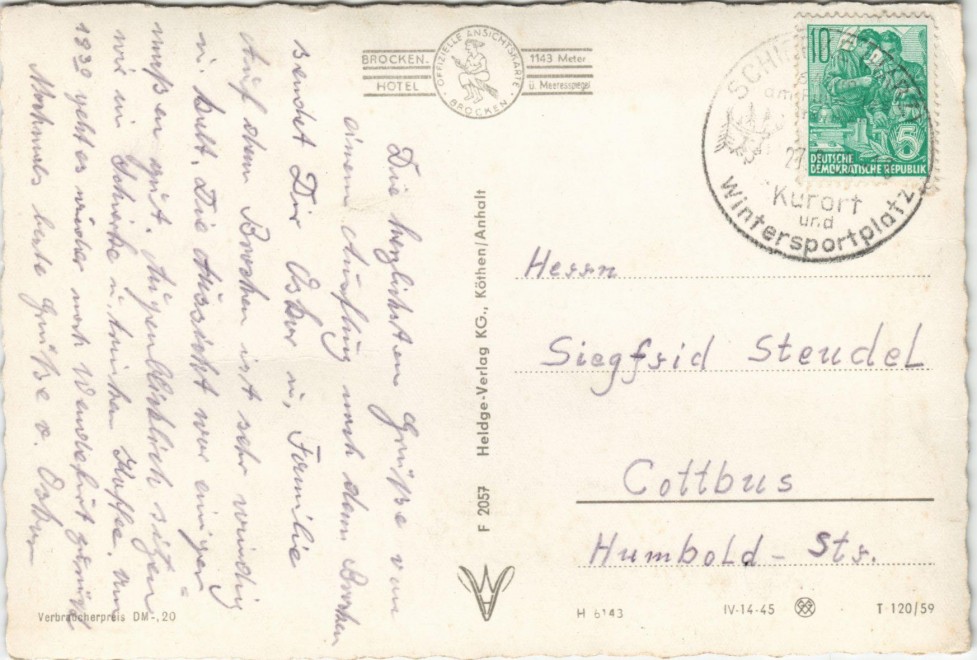 BROCKEN-
HOTEL
OFFIZIELLE ANSICHTSKARTE
BROCKEN
1143 Meter
ü. Meeresspiegel
Die herzlichsten Grüße von
einem Ausflug nach dem Brocken
sendet Dir Oskar u. Familie
Auf dem Brocken ist sehr windig
u. kalt. Die Aussicht war einiger=
maßen gut. Augenblicklich sitzen
wir in Schierke u. trinken Kaffee. Um
1930 geht es wieder nach Wendefurt zurück
Nochmals beste Grüße v. Oskar
Verbraucherpreis DM-,20
F 2057 Heldge-Verlag KG., Köthen/Anhalt
10
5
DEUTSCHE
DEMOKRATISCHE REPUBLIK
27
Kurort
und
Wintersportplatz
Herrn
Siegfrid Steudel
Cottbus
Humbold-Str.
H 6143
IV-14-45
T 120/59